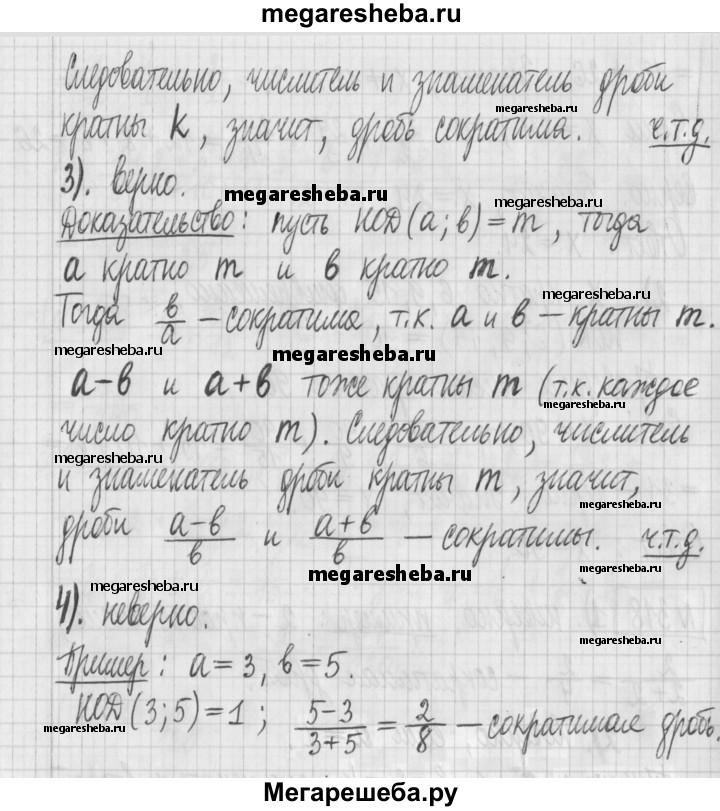 megaresheba.ru
Следовательно, числитель и знаменатель дроби
megaresheba.ru
кратны k, значит, дробь сократима. ч.т.д.
megaresheba.ru
3). верно.
megaresheba.ru
megaresheba.ru
Доказательство: пусть НОД(a; в)=m, тогда
a кратно m и в кратно m.
megaresheba.ru
Тогда в/a – сократима, т.к. a и в – кратны m.
megaresheba.ru
megaresheba.ru
a–в и a+в тоже кратны m (т.к. каждое
megaresheba.ru
число кратно m). Следовательно, числитель
megaresheba.ru
и знаменатель дроби кратны m, значит,
megaresheba.ru
дроби a–в/в и a+в/в – сократимы. ч.т.д.
megaresheba.ru
megaresheba.ru
4). неверно.
megaresheba.ru
Пример: a=3, в=5.
НОД(3;5)=1; 5–3/3+5 = 2/8 – сократимая дробь.
megaresheba.ru
megaresheba.ru
Мегарешеба.ру